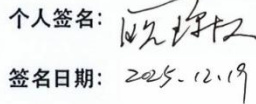 个人签名：
签名日期： 2025.12.19